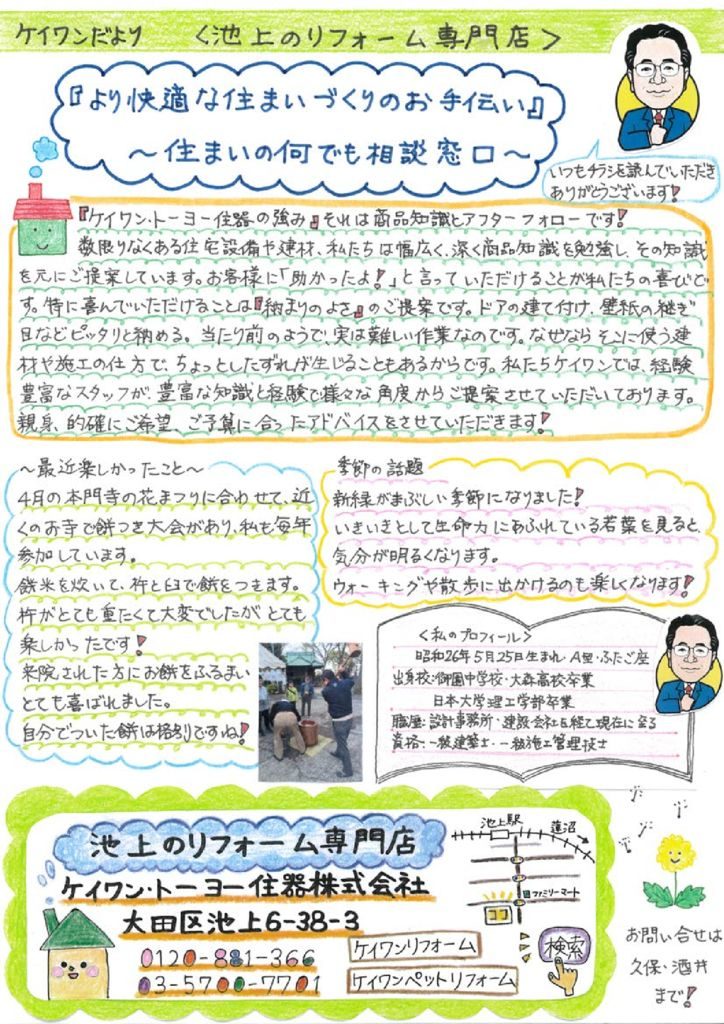 ケイワンだより 〈池上のリフォーム専門店〉
『より快適な住まいづくりのお手伝い』
～住まいの何でも相談窓口～
いつもチラシを読んでいただき
ありがとうございます!
『ケイワン・トーヨー住器の強み』それは商品知識とアフターフォローです!
数限りなくある住宅設備や建材、私たちは幅広く、深く商品知識を勉強し、その知識
を元にご提案しています。お客様に「助かったよ!」と言っていただけることが私たちの喜びで
す。特に喜んでいただけることは『納まりのよさ』のご提案です。ドアの建て付け、壁紙の継ぎ
目などピッタリと納める。当たり前のようで、実は難しい作業なのです。なぜならそこに使う建
材や施工の仕方で、ちょっとしたずれが生じることもあるからです。私たちケイワンでは、経験
豊富なスタッフが、豊富な知識と経験で様々な角度からご提案させていただいております。
親身、的確にご希望、ご予算に合ったアドバイスをさせていただきます!
～最近楽しかったこと～
4月の本門寺の花まつりに合わせて、近
くのお寺で餅つき大会があり、私も毎年
参加しています。
餅米を炊いて、杵と臼で餅をつきます。
杵がとても重たくて大変でしたがとても
楽しかったです!
来院された方にお餅をふるまい
とても喜ばれました。
自分でついた餅は格別ですね!
季節の話題
新緑がまぶしい季節になりました!
いきいきとして生命力にあふれている若葉を見ると、
気分が明るくなります。
ウォーキングや散歩に出かけるのも楽しくなります!
〈私のプロフィール〉
昭和26年5月25日生まれ・A型・ふたご座
出身校:御園中学校・大森高校卒業
日本大学理工学部卒業
職歴:設計事務所・建設会社を経て現在に至る
資格:一級建築士・一級施工管理技士
池上のリフォーム専門店
ケイワン・トーヨー住器株式会社
大田区池上6-38-3
0120-881-366
03-5700-7701
ケイワンリフォーム
ケイワンペットリフォーム
検索
池上駅
蓮沼
ファミリーマート
ココ
お問い合せは
久保・酒井
まで!